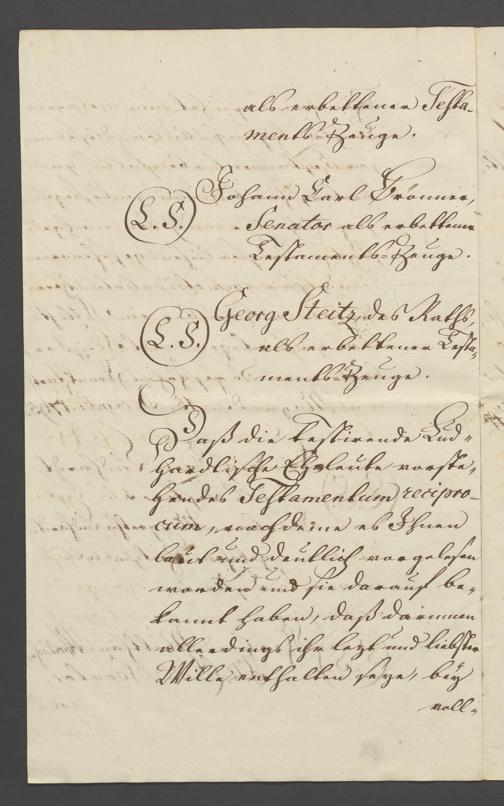 als erbettener Testa-
ments-Zeuge.
(L.S.) Johann Carl Brönner,
Senator als erbettener
Testaments-Zeuge.
(L.S.) Georg Steitz, des Raths,
als erbettener Testa-
ments-Zeuge.
Daß die testirende
Eheleute vorste-
hendes Testamentum recipro-
cum, nachdeme es Ihnen
laut und deutlich vorgelesen
worden und sie darauf be-
kannt haben, daß darinnen
allerdings ihr lezt und liebster
Wille enthalten seye, bey
voll-